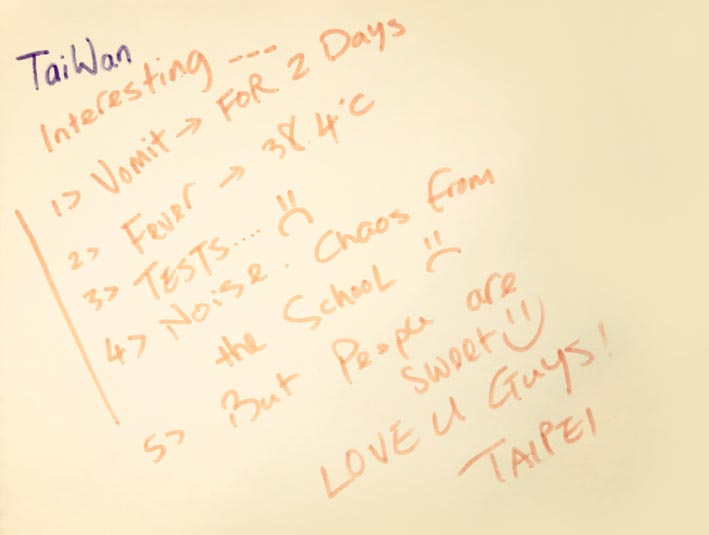 TaiWan
Interesting ---
1> Vomit → FOR 2 Days
2> Fever → 38.4°C
3> TESTS.... :(
4> Noise. Chaos from
the School :(
5> But People are
sweet :)
LOVE U Guys!
TAIPEI